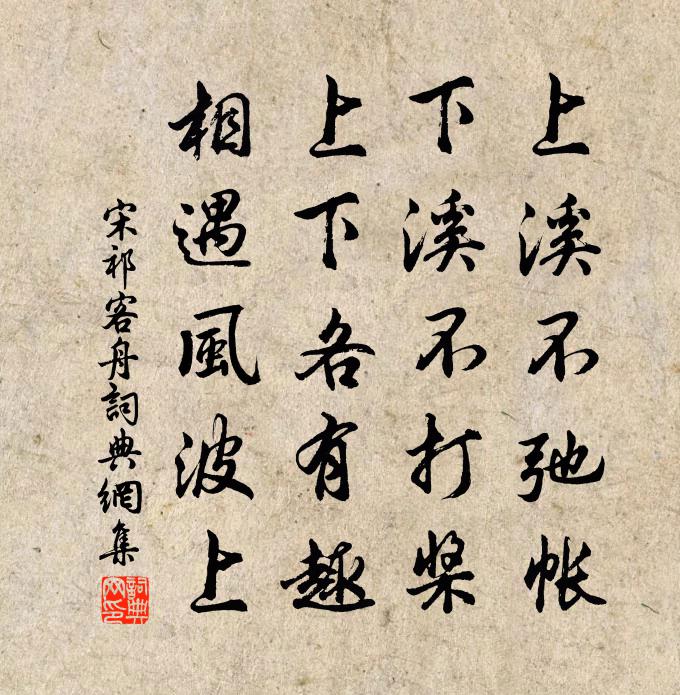 上溪不弛帐
下溪不打槳
上下各有趣
相遇風波上
宋祁客舟詞典網集
詞典网印